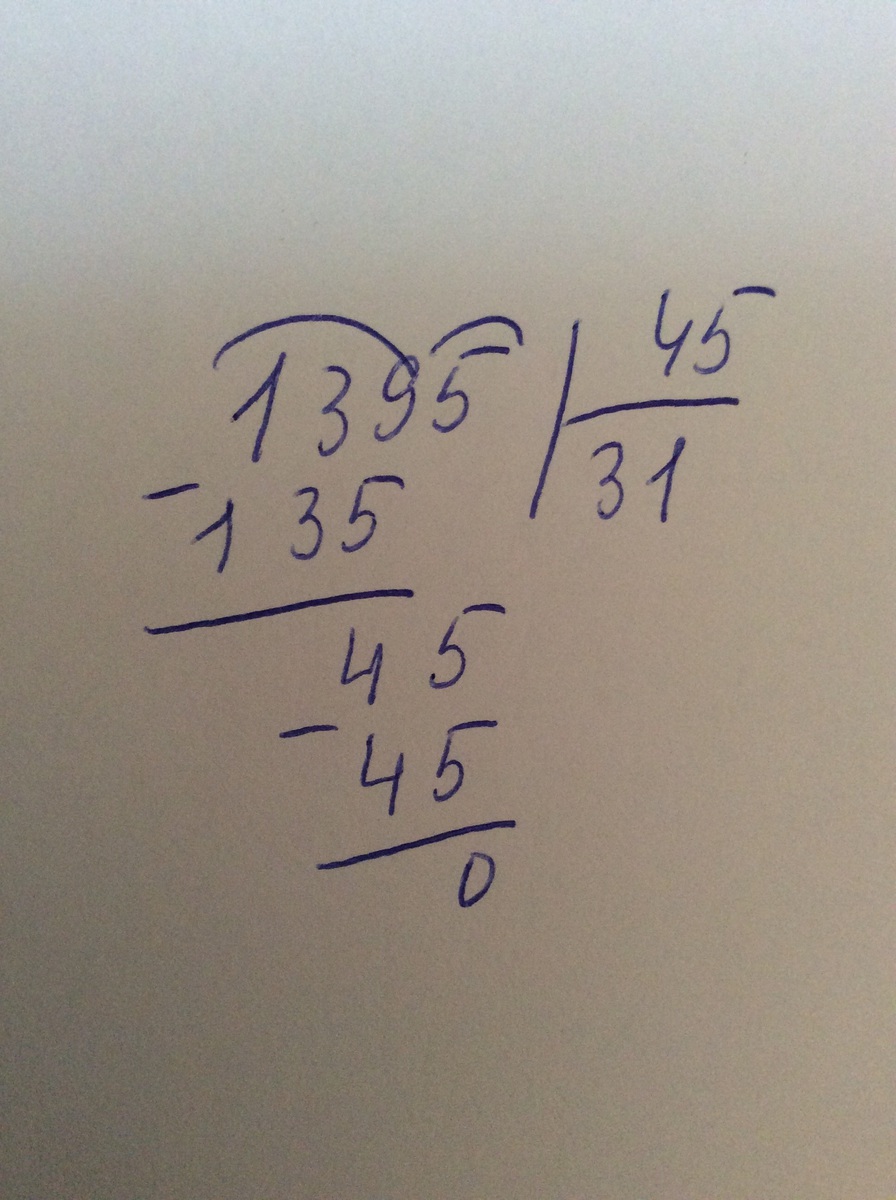 1395 45
- 135 31
45
- 45
0